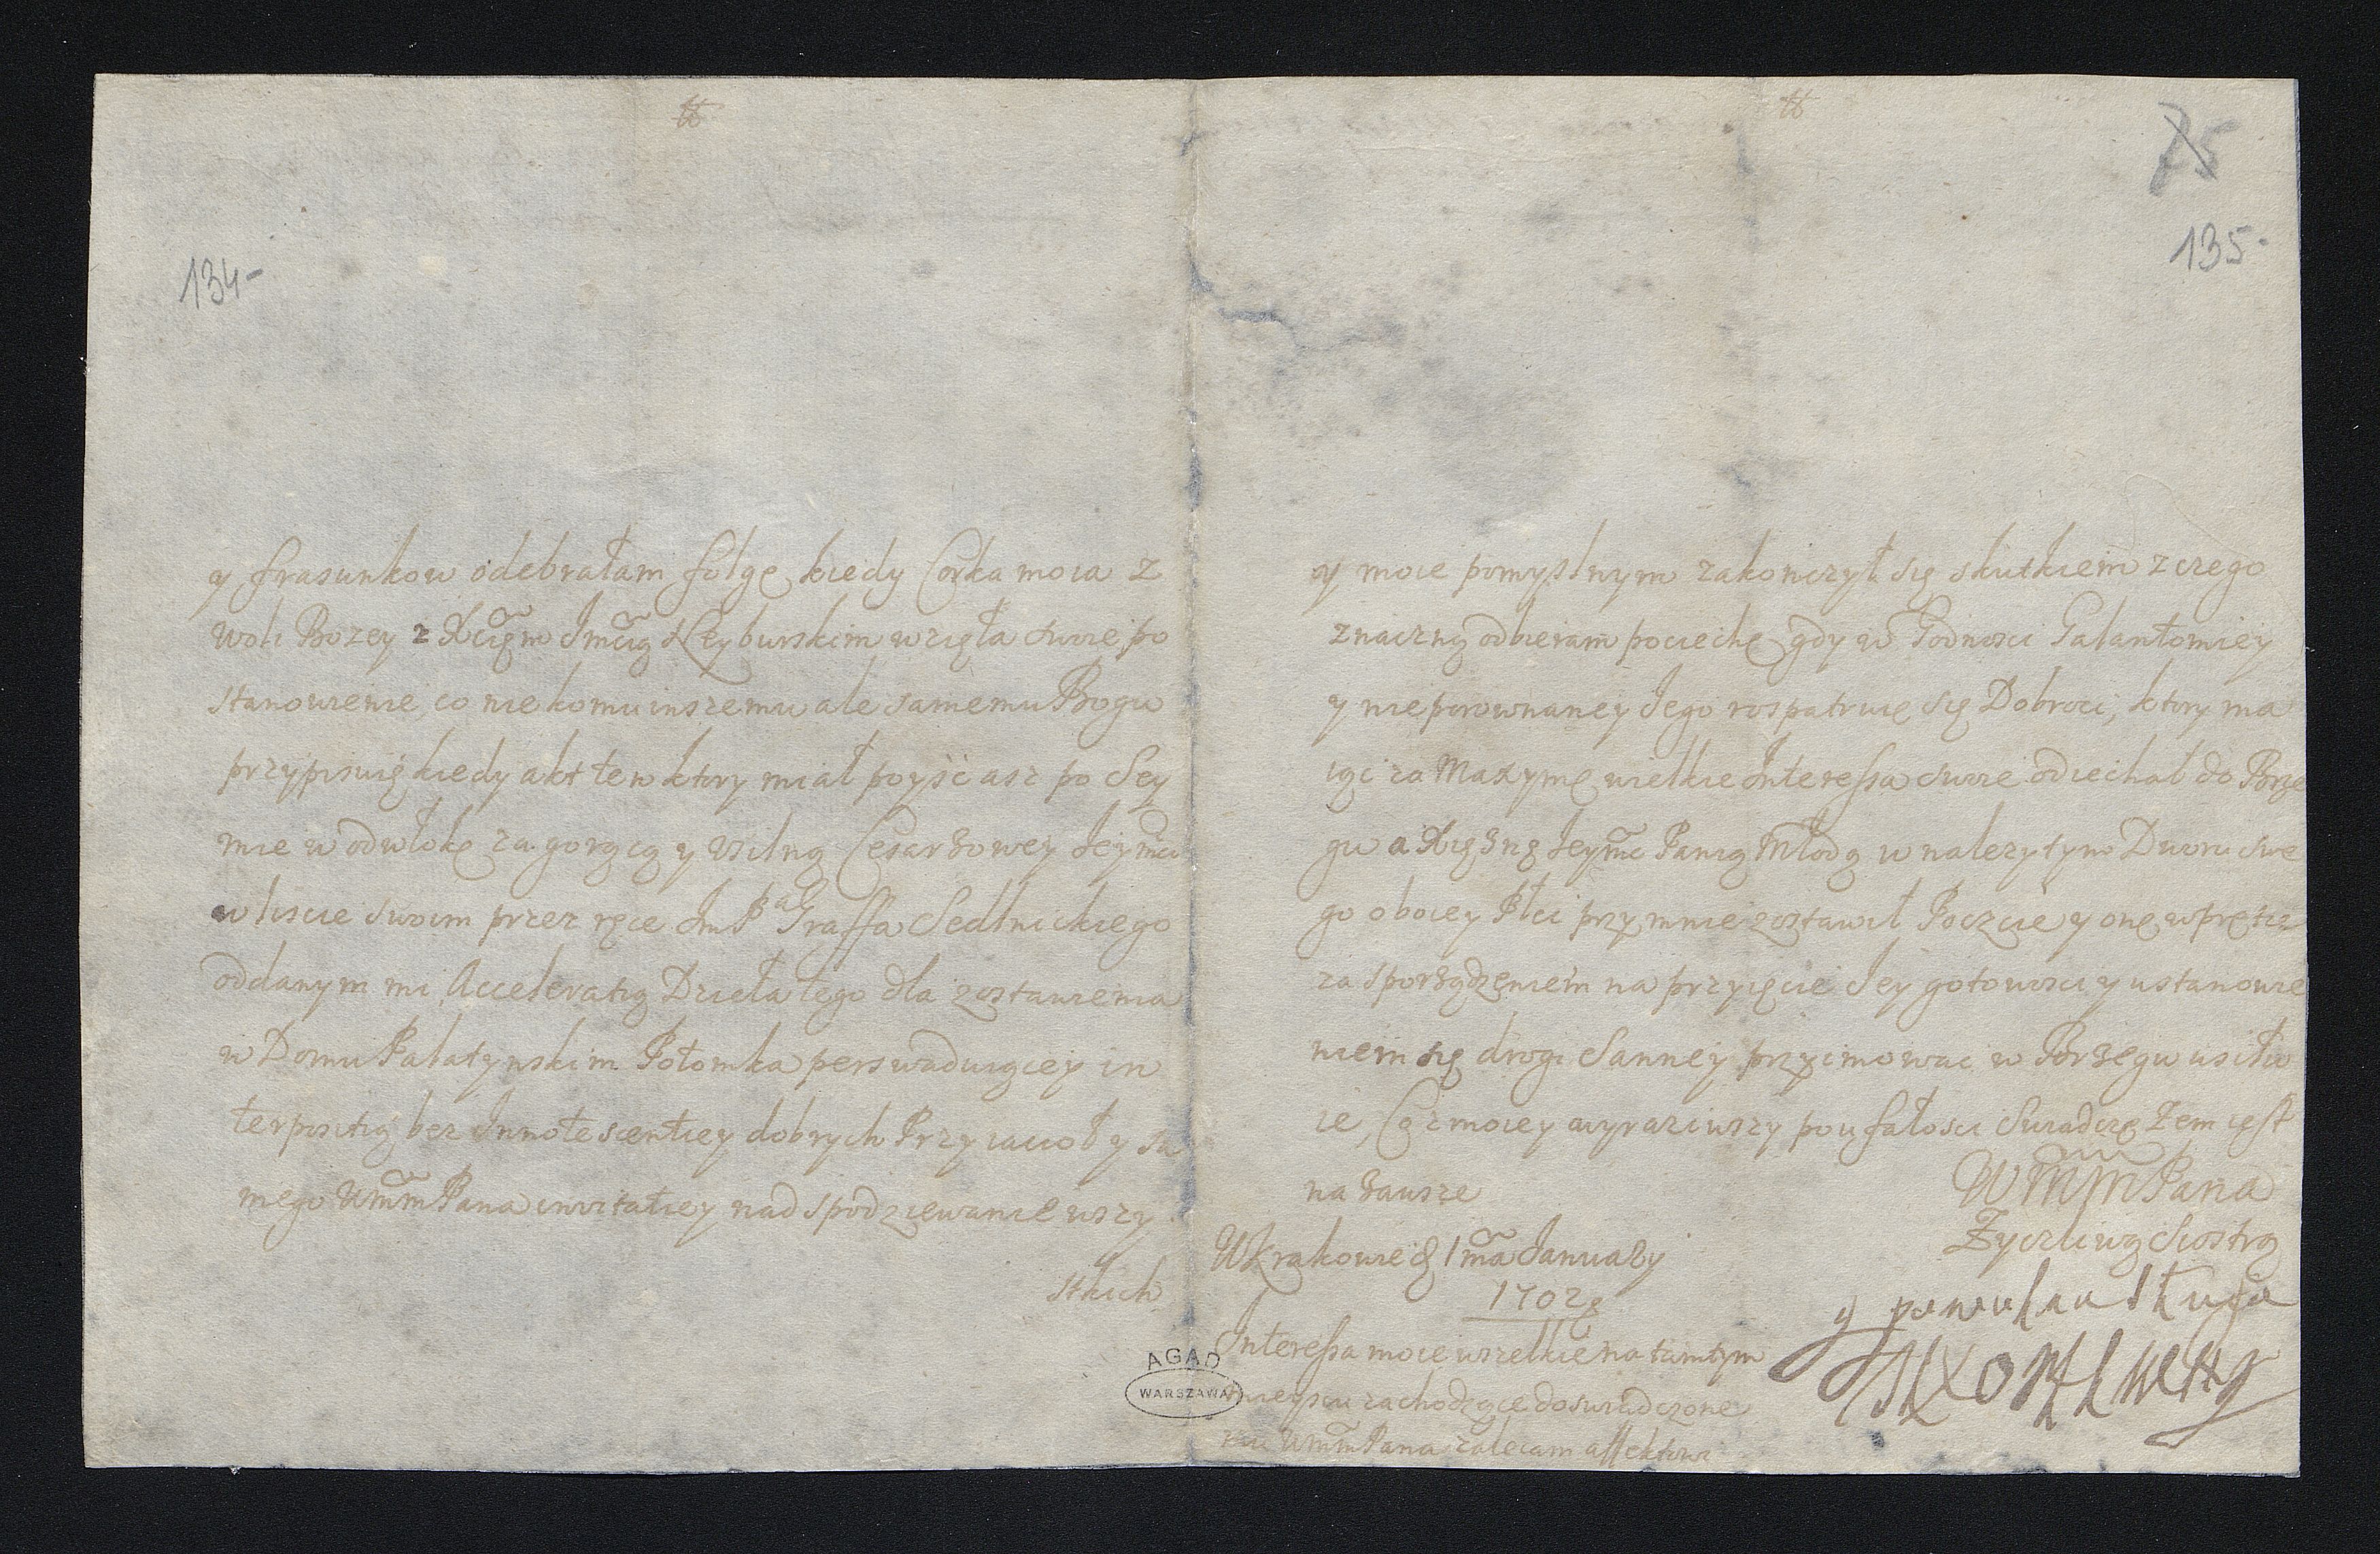 134-
y frasunkow odebrałam folgę, kiedy Corka moia z
woli Bozey z Xcięm Jmcią Neyburskim wzięła swoie po
stanowienie, co nie komu inszemu ale samemu Bogu
przypisuię kiedy akt ten ktory miał poyść asz po Sey
mie w odwłokę za gorącą y usilną Cesarzowey Jeymci
w liscie swoim przez ręce Jm Pa Graffa Sedlnickiego
oddanym mi, Acceleratią Dzieła tego dla zostawienia
w Domu Palatynskim Potomka perswaduiącey in
terpositią bez Innotescentiey dobrych Przyiacioł y sa
mego WmMPana invitatiey nad spodziewanie wszy
stkich
75
135-
y moie pomyslnym zakonczył się skutkiem z czego
znaczną odbieram pociechę, gdy w Godnosci Galantomiey
y nieporownaney Jego rospatruię się Dobroci, ktory ma
iąc za Maxymę wielkie Interessa swoie odiechał do Brze
gu a Xięznę Jeymc Panią Młodą w nalezytym Dworu swe
go oboiey Płci przy mnie zostawił Poczcie y onę wprętce
za sporządzeniem na przyięcie Jey gotowosci y ustanowie
niem się drogi Sanney przyimowac w Brzegu usiłu
ie, Co z moiey wyraziwszy poufałosci Swiadczę Zem iest
na zawsze
WMMPana
Zyczliwą Siostrą
y powolna sługa
W Krakowie d 1ma January
1702
Interessa moie wszelkie na tamtym
mieyscu zachodzące doswiadczone
mu WmMPana zalecam affektowi
AGAD
WARSZAWA